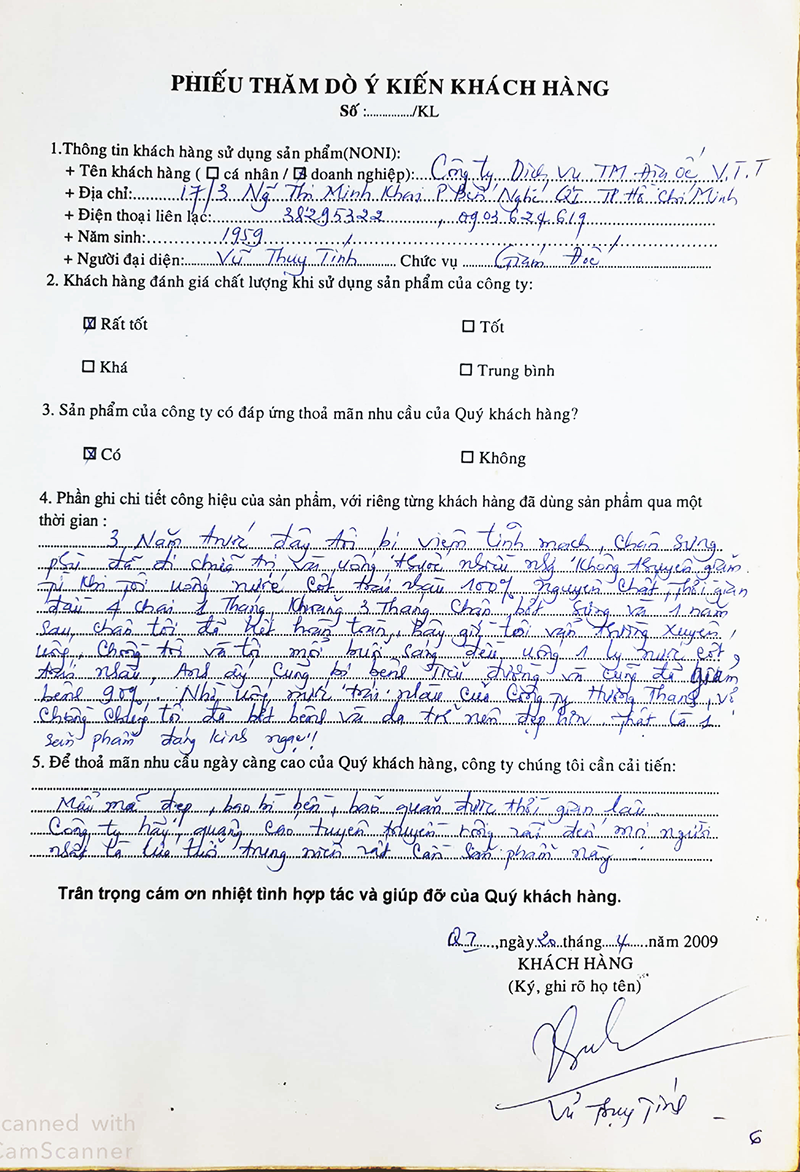 PHIẾU THĂM DÒ Ý KIẾN KHÁCH HÀNG
Số :.............../KL
1.Thông tin khách hàng sử dụng sản phẩm(NONI):
+ Tên khách hàng ( ☐ cá nhân / ☒ doanh nghiệp): Công ty Dịch vụ TM Địa ốc V.T.T
+ Địa chỉ: 17/3 Ng Thị Minh Khai P Bến Nghé Q1 TP Hồ Chí Minh
+ Điện thoại liên lạc: 38295322, 0903.624.619
+ Năm sinh: 1959
+ Người đại diện: Vũ Thụy Tính Chức vụ Giám Đốc
2. Khách hàng đánh giá chất lượng khi sử dụng sản phẩm của công ty:
☒ Rất tốt ☐ Tốt
☐ Khá ☐ Trung bình
3. Sản phẩm của công ty có đáp ứng thoả mãn nhu cầu của Quý khách hàng?
☒ Có ☐ Không
4. Phần ghi chi tiết công hiệu của sản phẩm, với riêng từng khách hàng đã dùng sản phẩm qua một
thời gian :
3 Năm trước đây tôi bị viêm tĩnh mạch, chân sưng
phù đã đi chữa trị và uống thuốc nhiều không thuyên giảm.
Khi tôi uống nước cốt trái nhàu 100% nguyên chất, thời gian
đầu 4 chai 1 tháng, khoảng 3 tháng chân bớt sưng và 1 năm
sau, chân tôi đã hết hoàn toàn, bây giờ tôi vẫn thường xuyên
uống, chồng tôi và tôi mỗi buổi sáng đều uống 1 ly nước cốt
trái nhàu, Anh ấy cũng bị bệnh tiểu đường và cũng đã giảm
bệnh 90%. Nhờ uống nước trái nhàu của Công ty Hương Thanh, vợ
chồng chúng tôi đã hết bệnh và da trẻ nên đẹp hơn, thật là 1
sản phẩm đáng kinh ngạc!
5. Để thoả mãn nhu cầu ngày càng cao của Quý khách hàng, công ty chúng tôi cần cải tiến:
Mẫu mã đẹp, bao bì bền, bảo quản được thời gian lâu
Công ty hãy quảng cáo tuyên truyền rộng rãi đến mọi người
nhất là lứa tuổi trung niên rất cần sản phẩm này
Trân trọng cám ơn nhiệt tình hợp tác và giúp đỡ của Quý khách hàng.
Q1, ngày 20 tháng 4 năm 2009
KHÁCH HÀNG
(Ký, ghi rõ họ tên)
Vũ Thụy Tính
canned with
CamScanner
6